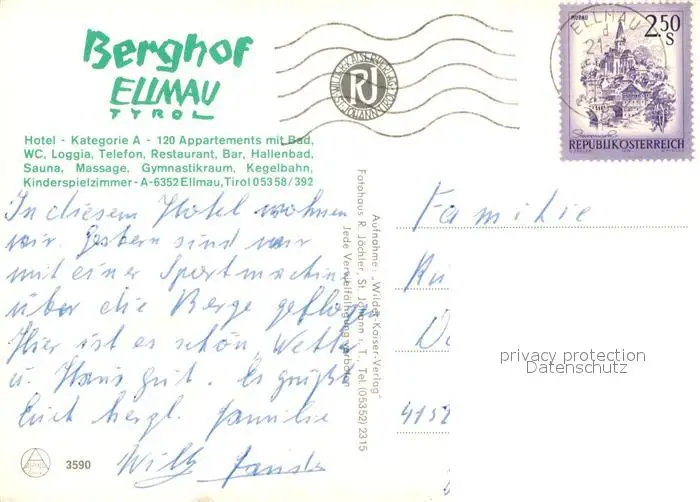 Berghof
ELLMAU
TYROL
Hotel - Kategorie A - 120 Appartements mit Bad,
WC, Loggia, Telefon, Restaurant, Bar, Hallenbad,
Sauna, Massage, Gymnastikraum, Kegelbahn,
Kinderspielzimmer - A-6352 Ellmau, Tirol 05358/392
In diesem Hotel wohnen
wir. Gestern sind wir
mit einer Sportmaschine
über die Berge geflogen
Hier ist es schön, Wetter
u. Haus gut. Es grüßt
Euch herzl. Familie
Willy
3590
Aufnahme: „Wilder-Kaiser-Verlag"
Fotohaus R. Jöchler, St. Johann i. T., Tel. (05352) 2315
Jede Vervielfältigung verboten
RJ
ELLMAU
MURAU
2.50 S
REPUBLIK ÖSTERREICH
Familie
415
privacy protection
Datenschutz